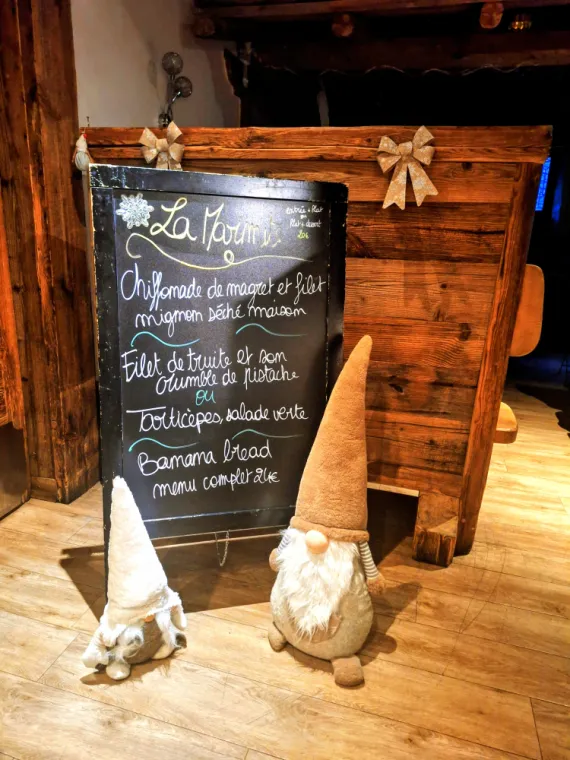 La Marmite
entrée + Plat
ou
Plat + dessert
20€
Chiffonade de magret et filet
mignon séché maison
Filet de truite et son
crumble de pistache
ou
Torticèpes, salade verte
Banana bread
menu complet 24€